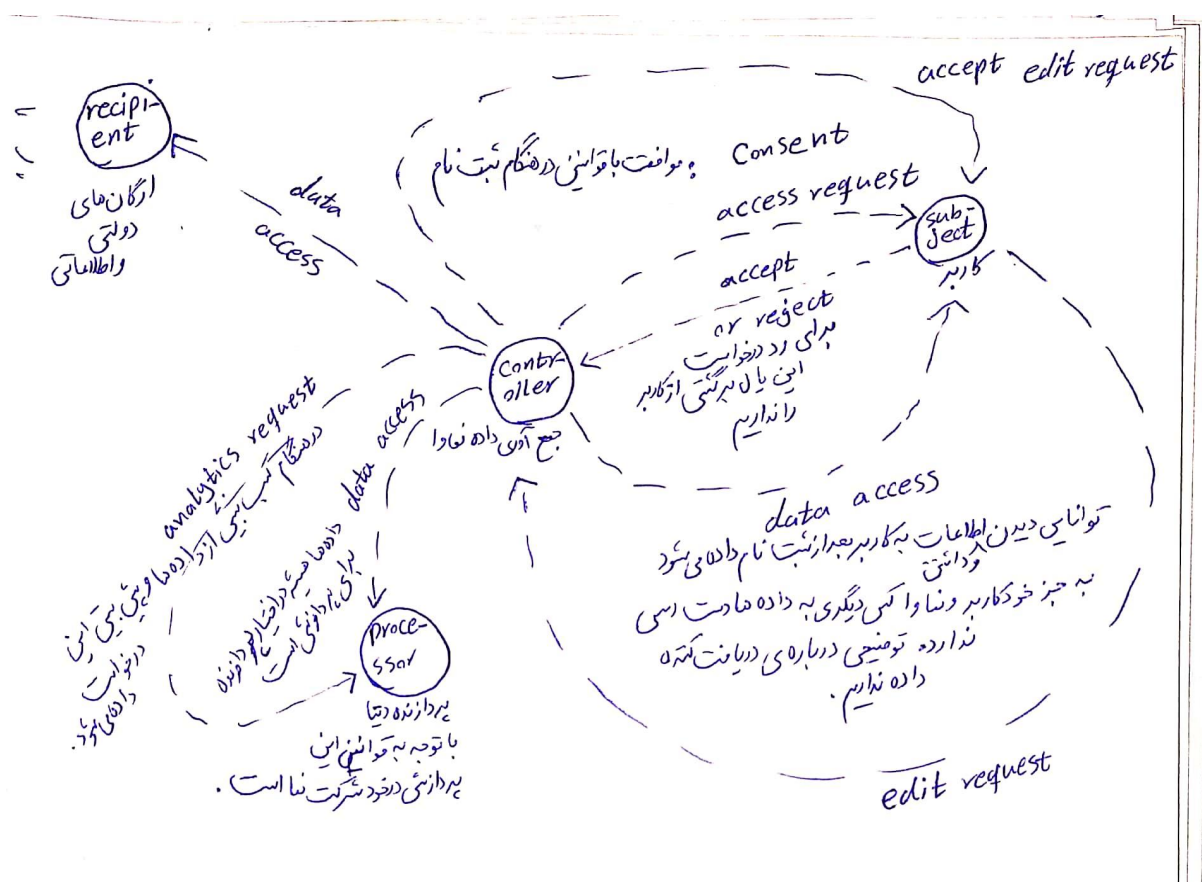 accept edit request
recipi-
ent
ارگان‌های
دولتی
و اطلاعاتی
data
access
به موافقت با قوانین در هنگام ثبت نام
Consent
access request
sub-
ject
کاربر
accept
or reject
برای رد درخواست
این یال برگشتی از کاربر
را نداریم
contr-
oller
جمع آوری داده نماوا
analytics request
در هنگام کسب بینش از داده ها و پیش بینی این
درخواست
داده می شود.
data access
داده ها همیشه در اختیار پردازنده
برای پردازش است
proce-
ssor
پردازنده دیتا
با توجه به قوانین این
پردازش در خود شرکت نما است.
data access
توانایی دیدن و داشتن اطلاعات به کاربر بعد از ثبت نام داده می شود
به جز خود کاربر و نماوا کس دیگری به داده ها دست رسی
ندارد. توضیحی درباره‌ی دریافت کننده
داده نداریم.
edit request